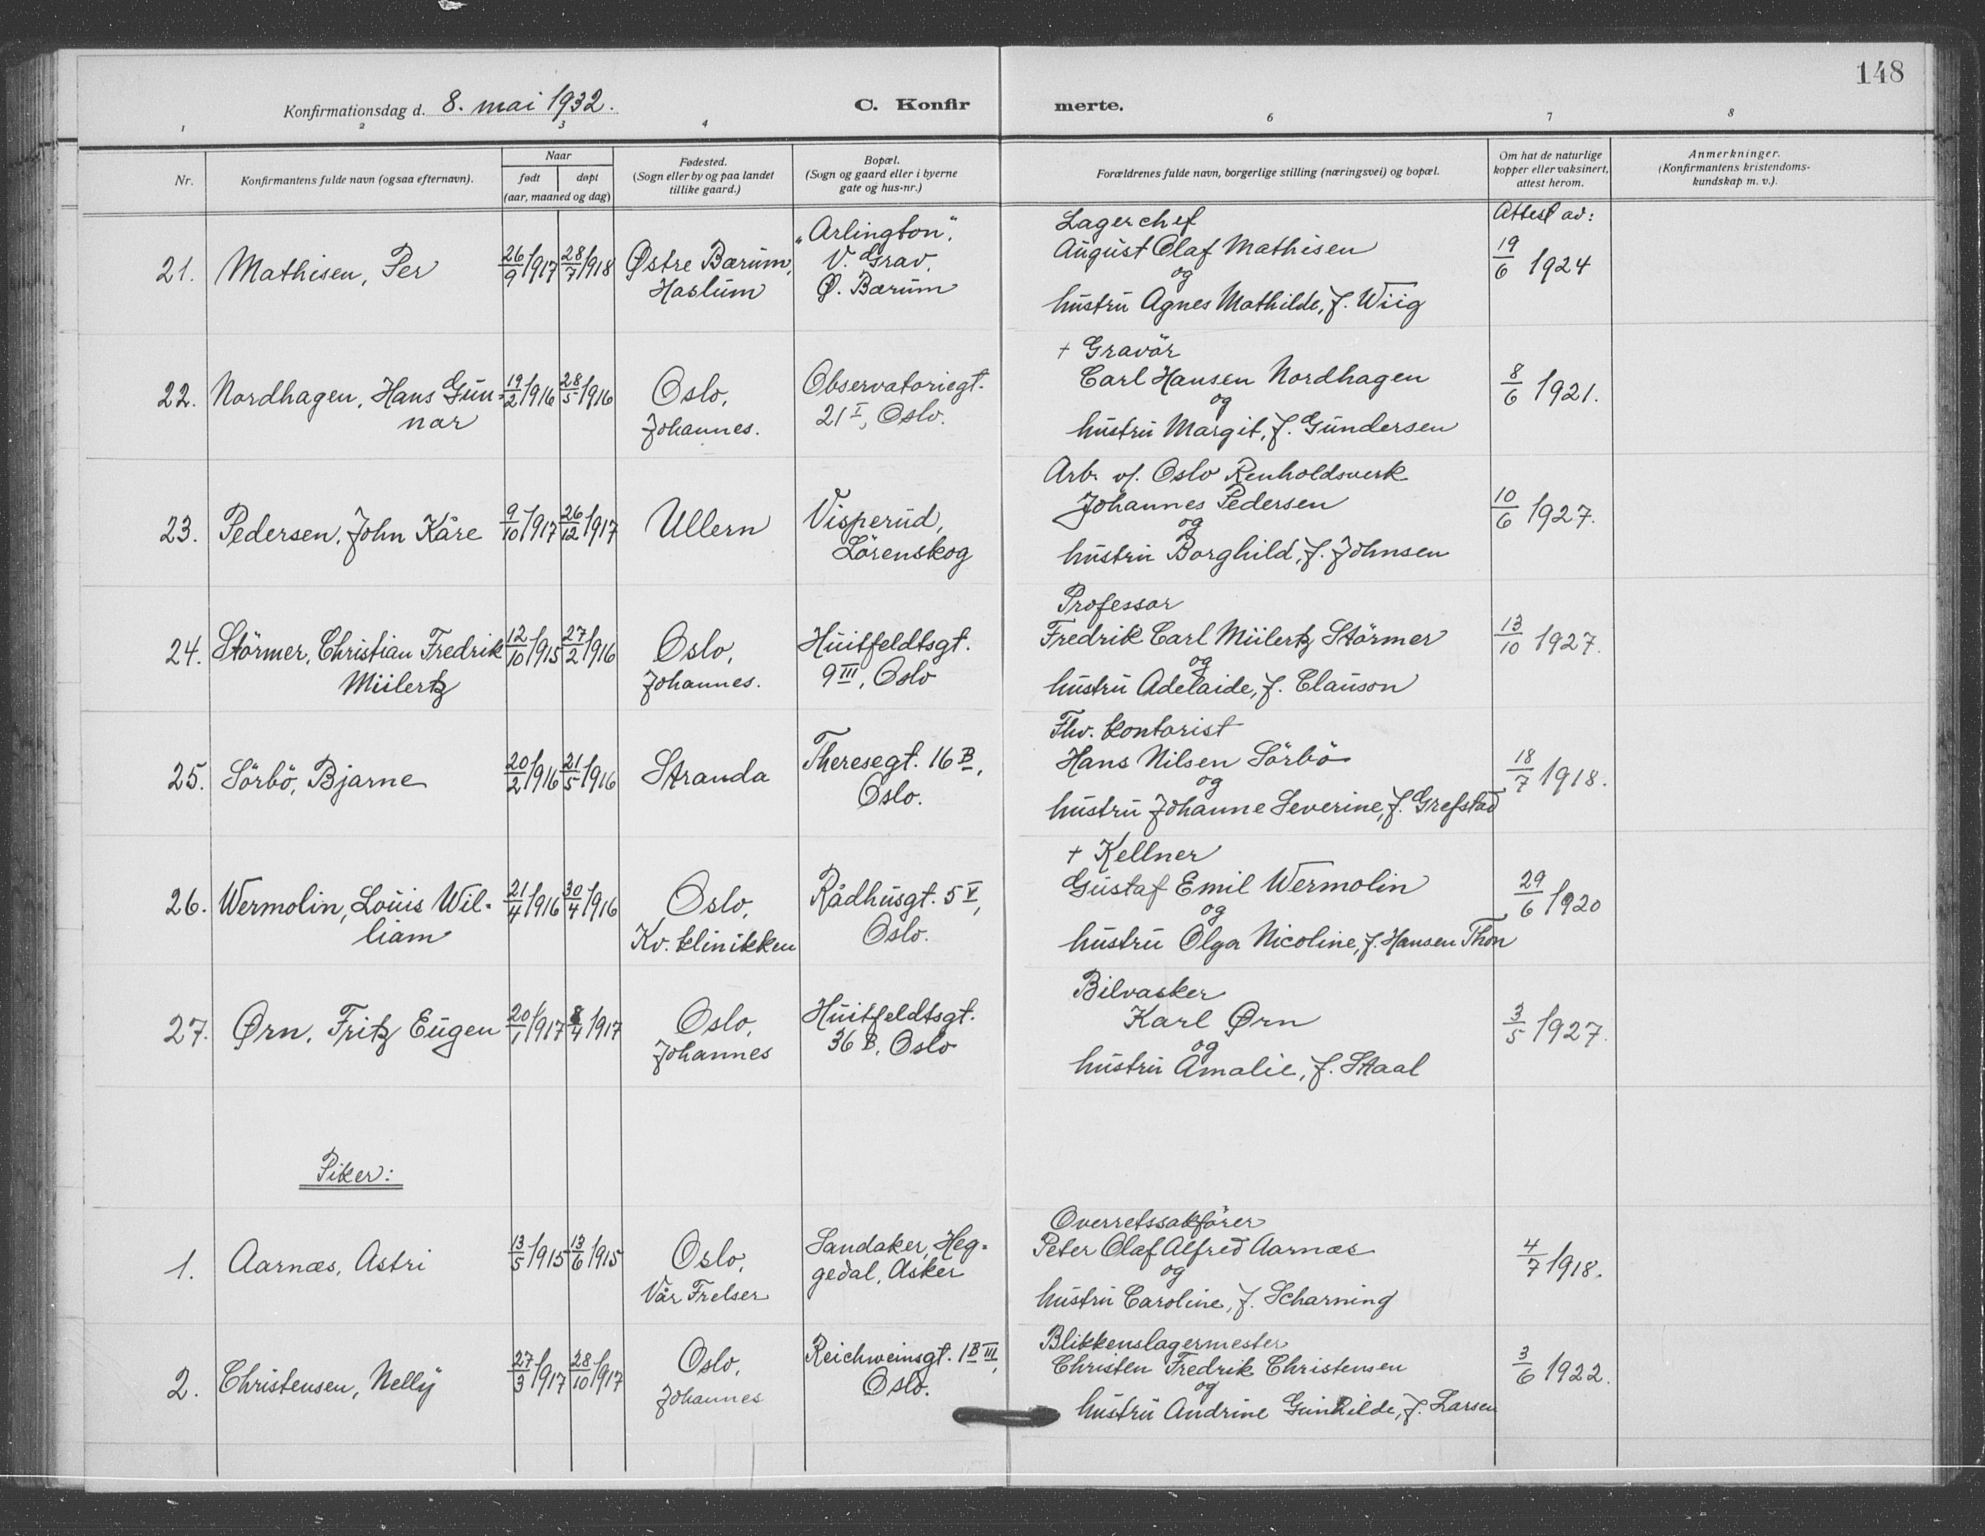 148
Konfirmationsdag d. 8. mai 1932.
C. Konfir merte.
1 2 3 4 6 7 8
Nr.
Konfirmantens fulde navn (ogsaa efternavn).
Naar
født døpt
(aar, maaned og dag)
Fødested.
(Sogn eller by og paa landet
tillike gaard.)
Bopæl.
(Sogn og gaard eller i byerne
gate og hus-nr.)
Forældrenes fulde navn, borgerlige stilling (næringsvei) og bopæl.
Om hat de naturlige
kopper eller vaksinert,
attest herom.
Anmerkninger.
(Konfirmantens kristendoms-
kundskap m. v.).
Attest av:
21. Mathisen, Per
26/9 1917 28/7 1918
Østre Bærum,
Haslum
"Arlington",
V. Grav,
Ø. Bærum
Lagerchef
August Olaf Mathisen
og
hustru Agnes Mathilde, f. Wiig
19/6 1924
22. Nordhagen, Hans Gun-
nar
19/2 1916 28/5 1916
Oslo,
Johannes.
Observatoriegt.
21 I, Oslo.
+ Gravör
Carl Hansen Nordhagen
og
hustru Margit, f. Gundersen
8/6 1921.
23. Pedersen, John Kåre
9/10 1917 26/12 1917
Ullern
Visperud,
Lörenskog
Arb. v/. Oslo Renholdsverk
Johannes Pedersen
og
hustru Borghild, f. Johnsen
10/6 1927.
24. Störmer, Christian Fredrik
Mülertz
12/10 1915 27/2 1916
Oslo,
Johannes.
Huitfeldtsgt.
9 III, Oslo
Professor
Fredrik Carl Mülertz Störmer
og
hustru Adelaide, f. Clauson
13/10 1927.
25. Sörbö, Bjarne
20/2 1916 21/5 1916
Stranda
Theresegt. 16 B,
Oslo.
Fhv. kontorist
Hans Nilsen Sörbö
og
hustru Johanne Severine, f. Grefstad
18/7 1918.
26. Wermolin, Louis Wil-
liam
21/4 1916 30/4 1916
Oslo,
Kv. klinikken
Rådhusgt. 5 V,
Oslo.
+ Kellner
Gustaf Emil Wermolin
og
hustru Olga Nicoline, f. Hansen Thon
29/6 1920
27. Ørn, Fritz Eugen
20/1 1917 8/4 1917
Oslo,
Johannes
Huitfeldtsgt.
36 B, Oslo
Bilvasker
Karl Ørn
og
hustru Amalie, f. Staal
3/5 1927.
Piker:
1. Aarnæs, Astri
13/5 1915 13/6 1915
Oslo,
Vår Frelser
Sandaker, Heg-
gedal, Asker
Overretssakförer
Peter Olaf Alfred Aarnæs
og
hustru Caroline, f. Scharning
4/7 1918.
2. Christensen, Nelly
27/3 1917 28/10 1917
Oslo,
Johannes
Reichweinsgt. 1 B III,
Oslo.
Blikkenslagermester
Christen Fredrik Christensen
og
hustru Andrine Gunhilde, f. Larsen
3/6 1922.